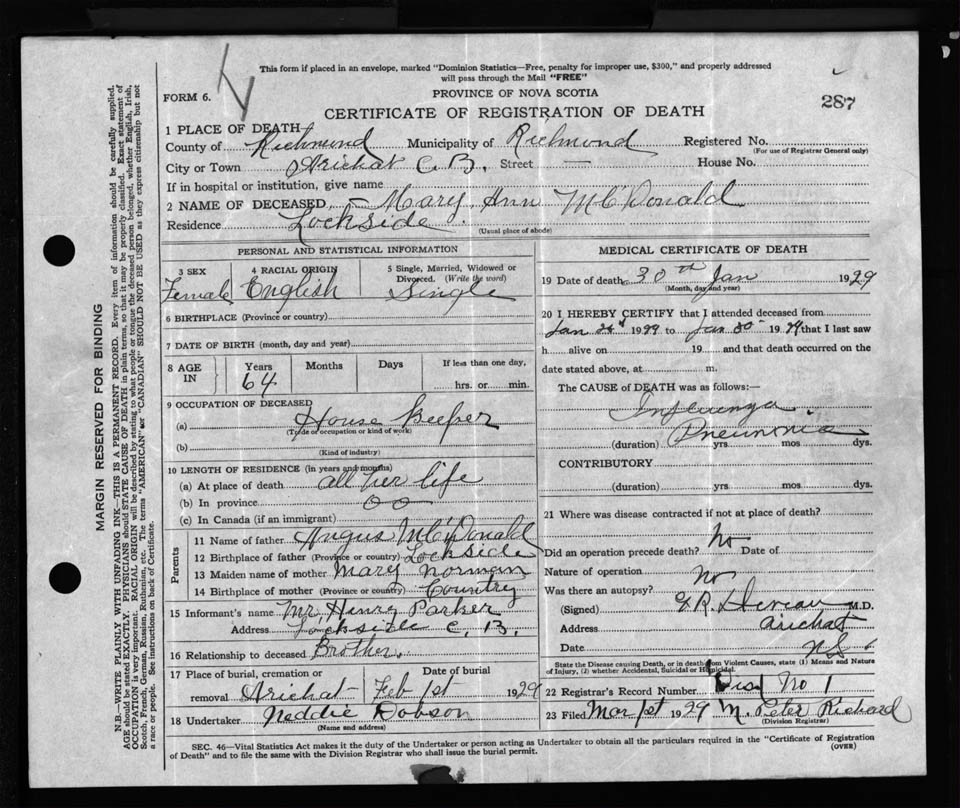 This form if placed in an envelope, marked "Dominion Statistics—Free, penalty for improper use, $300," and properly addressed
will pass through the Mail "FREE"
FORM 6.
PROVINCE OF NOVA SCOTIA
287
CERTIFICATE OF REGISTRATION OF DEATH
1 PLACE OF DEATH
County of Richmond Municipality of Richmond Registered No.
(For use of Registrar General only)
City or Town Arichat C. B., Street — House No.
If in hospital or institution, give name
2 NAME OF DECEASED Mary Ann McDonald
Residence Lochside
(Usual place of abode)
PERSONAL AND STATISTICAL INFORMATION
3 SEX Female
4 RACIAL ORIGIN English
5 Single, Married, Widowed or
Divorced. (Write the word)
Single
6 BIRTHPLACE (Province or country)
7 DATE OF BIRTH (month, day and year)
8 AGE IN Years 64 Months Days If less than one day,
hrs. or min.
9 OCCUPATION OF DECEASED
(a) House Keeper
(Trade or occupation or kind of work)
(b)
(Kind of industry)
10 LENGTH OF RESIDENCE (in years and months)
(a) At place of death all her life
(b) In province
(c) In Canada (if an immigrant)
Parents
11 Name of father Angus McDonald
12 Birthplace of father (Province or country) Lockside
13 Maiden name of mother Mary Norman
14 Birthplace of mother (Province or country) Country
15 Informant's name Mr. Henry Parker
Address Lockside C. B.
16 Relationship to deceased Brother.
17 Place of burial, cremation or Date of burial
removal Arichat Feb 1st 1929
18 Undertaker Neddie Dobson
(Name and address)
MEDICAL CERTIFICATE OF DEATH
19 Date of death 30th Jan 1929
(Month, day and year)
20 I HEREBY CERTIFY that I attended deceased from
Jan 1929 to Jan 30 1929 that I last saw
h alive on 19 and that death occurred on the
date stated above, at m.
The CAUSE of DEATH was as follows:—
Influenza.
Pneumonia
(duration) yrs mos dys.
CONTRIBUTORY
(duration) yrs mos dys.
21 Where was disease contracted if not at place of death?
Did an operation precede death? No Date of
Nature of operation
Was there an autopsy? no
(Signed) M.D.
Address Arichat
Date NS
State the Disease causing Death, or in death from Violent Causes, state (1) Means and Nature
of Injury, (2) whether Accidental, Suicidal or Homicidal.
22 Registrar's Record Number Dist No 1
23 Filed Mar 1st 1929 M. Peter Richard
(Division Registrar)
SEC. 46—Vital Statistics Act makes it the duty of the Undertaker or person acting as Undertaker to obtain all the particulars required in the "Certificate of Registration
of Death" and to file the same with the Division Registrar who shall issue the burial permit.
(OVER)
MARGIN RESERVED FOR BINDING
N.B.—WRITE PLAINLY, WITH UNFADING INK—THIS IS A PERMANENT RECORD. Every item of information should be carefully supplied.
AGE should be stated EXACTLY. PHYSICIANS should STATE CAUSE OF DEATH in plain terms, so that it may be properly classified. Exact statement of
OCCUPATION is very important. RACIAL ORIGIN will be described by stating to what people or tongue the deceased person belonged, whether English, Irish,
Scotch, French, German, Russian, Ruthenian, etc. The terms "AMERICAN" or "CANADIAN" SHOULD NOT BE USED as they express citizenship but not
a race or people. See instructions on back of Certificate.